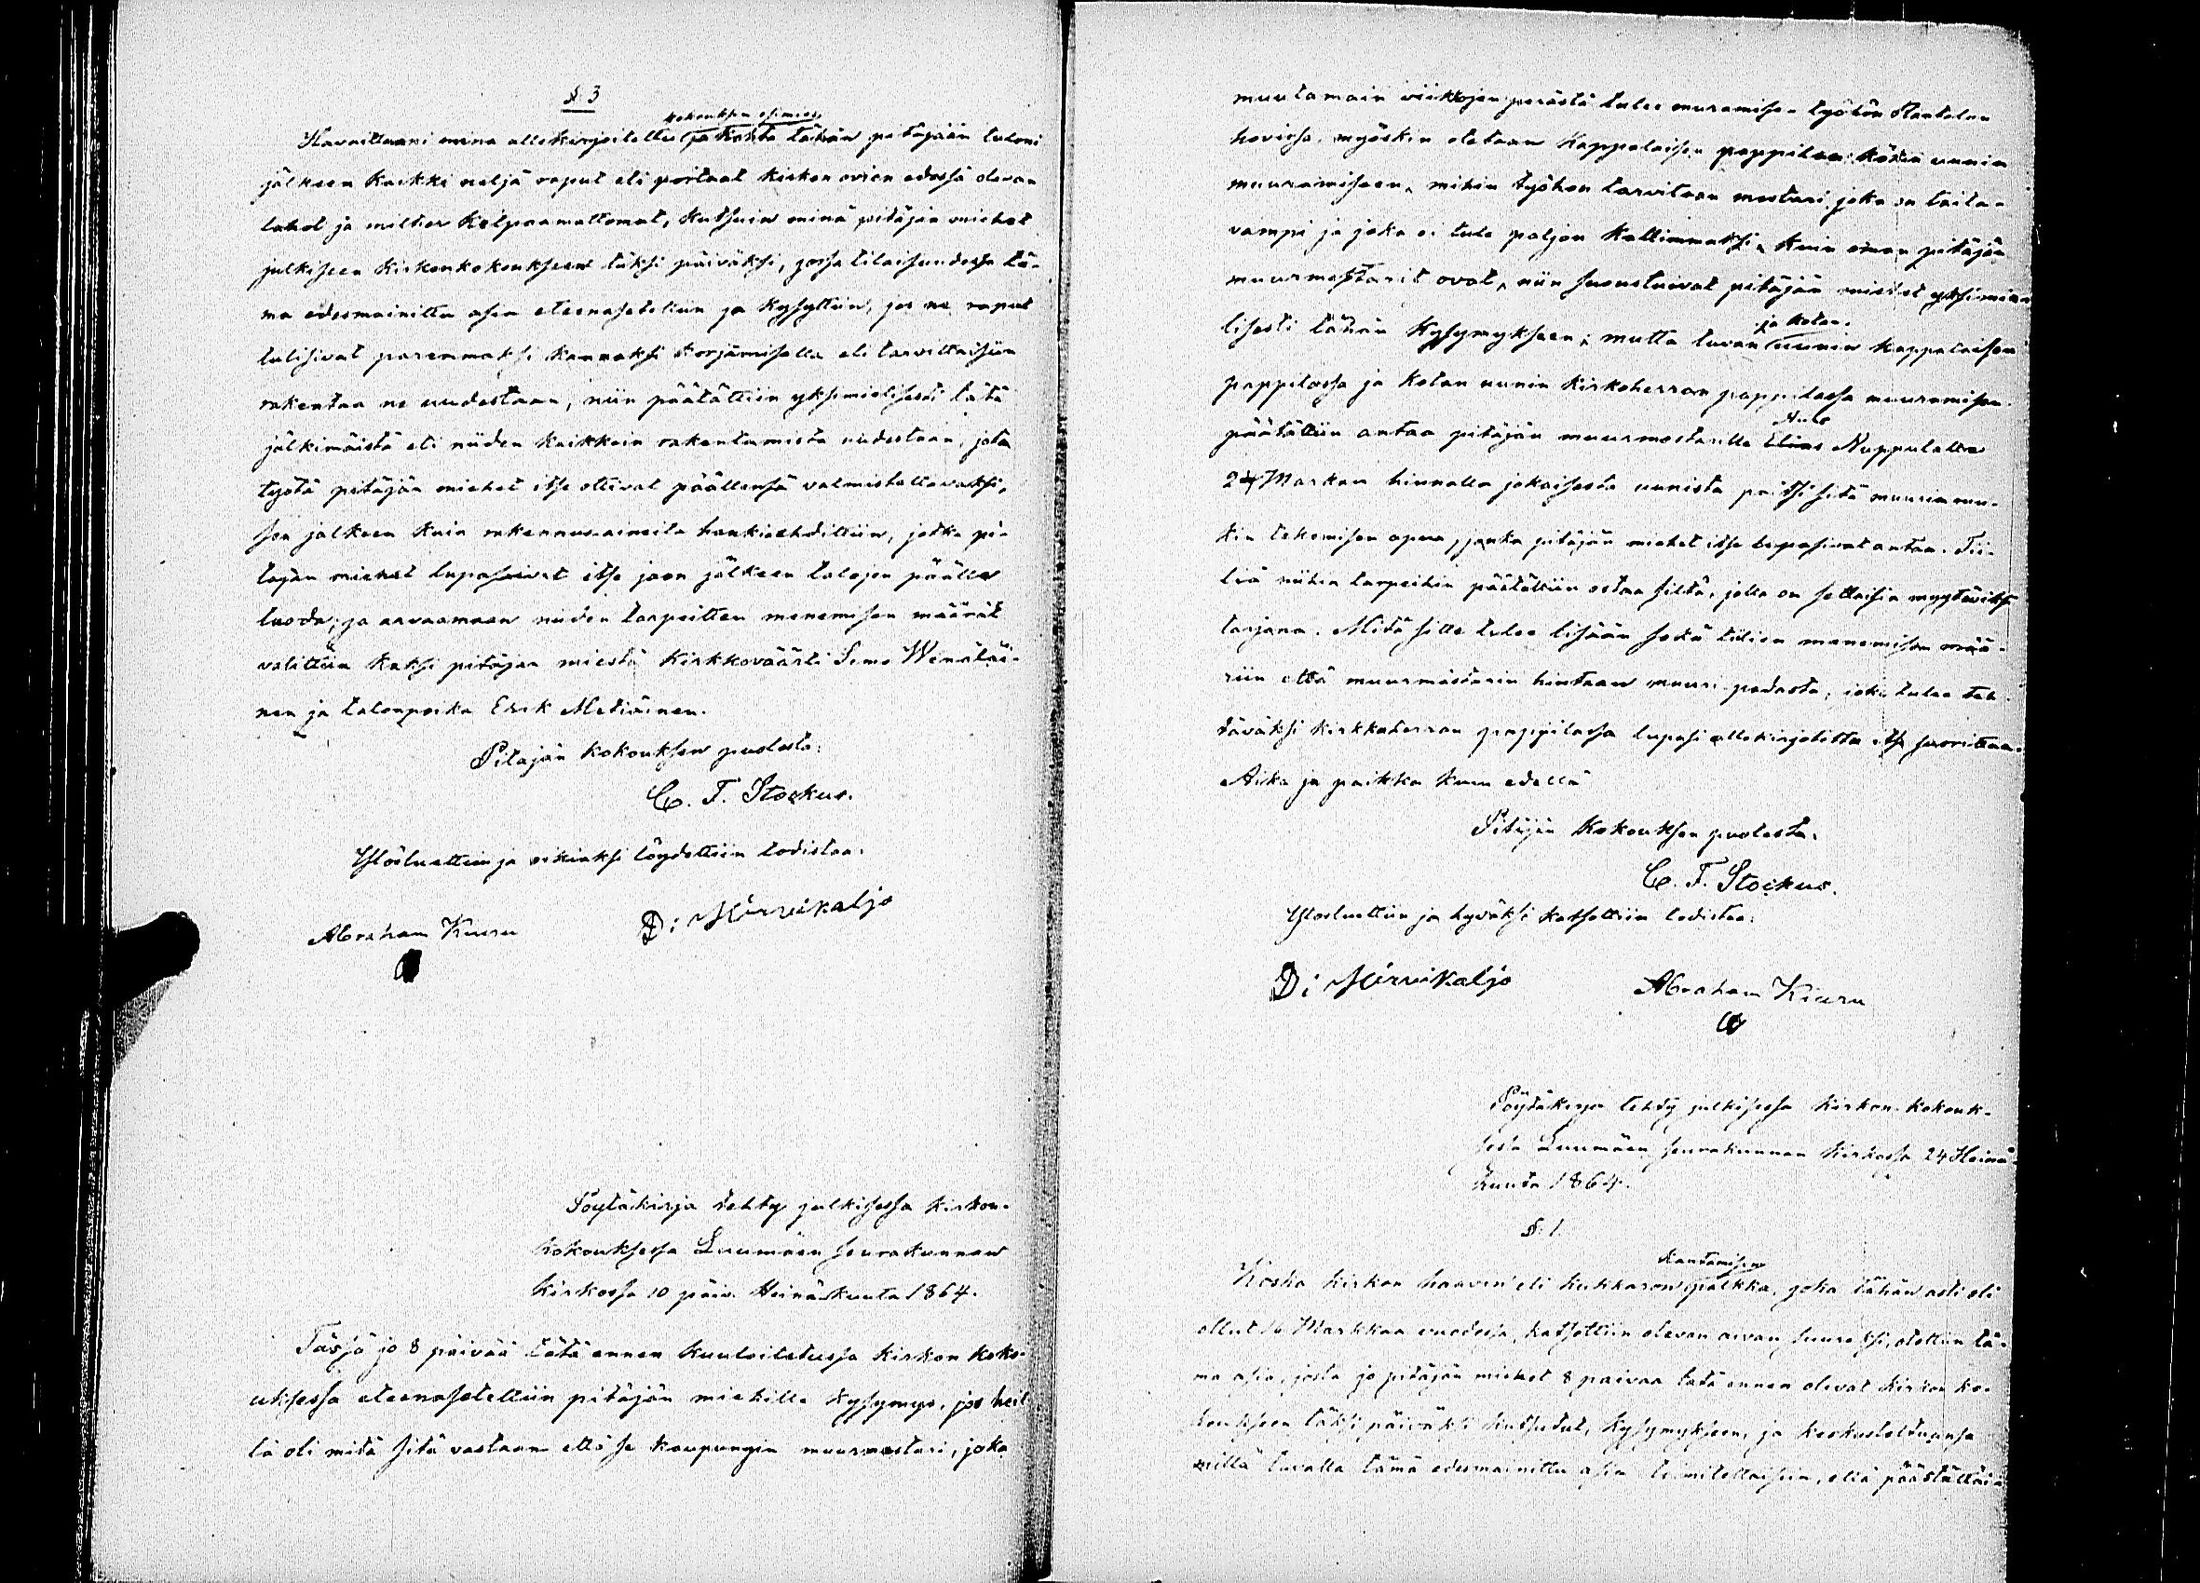 § 3
kokouksen esimies
Havaittuani minä allekirjoitettu ja kohta tähän pitäjään tuloni
jälkeen kaikki neljä raput eli portaat kirkon ovien edessä olevan
lahot ja milt'ei kelpaamattomat, kutsuin minä pitäjän miehet
julkiseen kirkonkokoukseen täksi päiväksi, jossa tilaisuudessa tä-
mä edesmainittu asia eteenasetettiin ja kysyttiin, jos ne raput
tulisivat paremmaksi kannaksi korjämisella eli tarvittaisiin
rakentaa ne uudestaan, niin päätättiin yksimielisesti tätä
jälkimäistä eli niiden kaikkein rakentamista uudestaan, jota
työtä pitäjän miehet itse ottivat päällensä valmistettavaksi,
sen jälkeen kuin rakennus-aineita hankiaehdittiin, jotka pi-
täjän miehet lupasivat itse jaon jälkeen talojen päälle
luoda; ja arvaamaan niiden tarpeitten menemisen määrät
valittiin kaksi pitäjän miestä Kirkkoväärti Simo Wenäläi-
nen ja talonpoika Erik Metiäinen.
Pitäjän kokouksen puolesta:
C. F. Stockus.
Ylösluettiin ja oikiaksi löydettiin todistaa:
Abraham Kiuru
D: Hirvikaljo
Pöytäkirja tehty julkisessa kirkon-
kokouksessa Luumäen seurakunnan
kirkossa 10 päiv. Heinäkuuta 1864.
Tässä jo 8 päivää tätä ennen kuuloitetussa kirkon koko-
uksessa eteenasetettiin pitäjän miehille kysymys, jos heil-
lä oli mitä sitä vastaan että se kaupungin muurmestari, joka
muutamain viikkojen perästä tulee muramisen työhön
hovissa, myöskin otetaan Kappalaisen pappilan uunin
muuramiseen, mihin työhön tarvitaan mestari joka on taita-
vampi ja joka ei tule paljon kallimmaksi, kuin oman pitäjän
muurmestarit ovat, niin suostuivat pitäjän miehet yksimie-
lisesti tähän kysymykseen; mutta tuvan uunin kappalaisen
ja kotan
pappilassa ja kotan uunin Kirkoherran pappilassa muuramisen
päätättiin antaa pitäjän muurmestarille Elias Nuppulalle
24 Markan hinnalla jokaisesta uunista paitsi sitä muurinmu-
tin tekemisen apua, jonka pitäjän miehet itse lupasivat antaa. Tii-
liä niihin tarpeihin päätättiin ostaa siltä, jolla on sellaisia myytäviksi
tarjana. Mitä sitte tulee lisään sekä tiilien menemisen mää-
riin että muurmästarin hintaan muuri-padasta, joka tulee teh-
täväksi kirkkoherran pappilassa lupasi allekirjotettu itse suorittaa.
Aika ja paikka kuin edellä
Pitäjän kokouksen puolesta:
C. F. Stockus.
Ylösluettiin ja hyväksi katsottiin todistaa:
D: Hirvikaljo
Abraham Kiuru
Pöytäkirja tehty julkisessa kirkon-kokouk-
sessa Luumäen seurakunnan kirkossa 24 Heinä-
kuuta 1864.
§ 1.
kantamisen
Koska kirkon haavin eli kukkaron palkka, joka tähän asti oli
ollut 16 Markkaa vuodessa, katsottiin olevan aivan suureksi, otettiin tä-
mä asia, josta jo pitäjän miehet 8 päivää tätä ennen olivat kirkon ko-
koukseen täksi päiväksi kutsutut, kysymykseen, ja keskusteltuansa
millä tavalla tämä edesmainittu asia toimitettaisiin, eliä päästättäisi